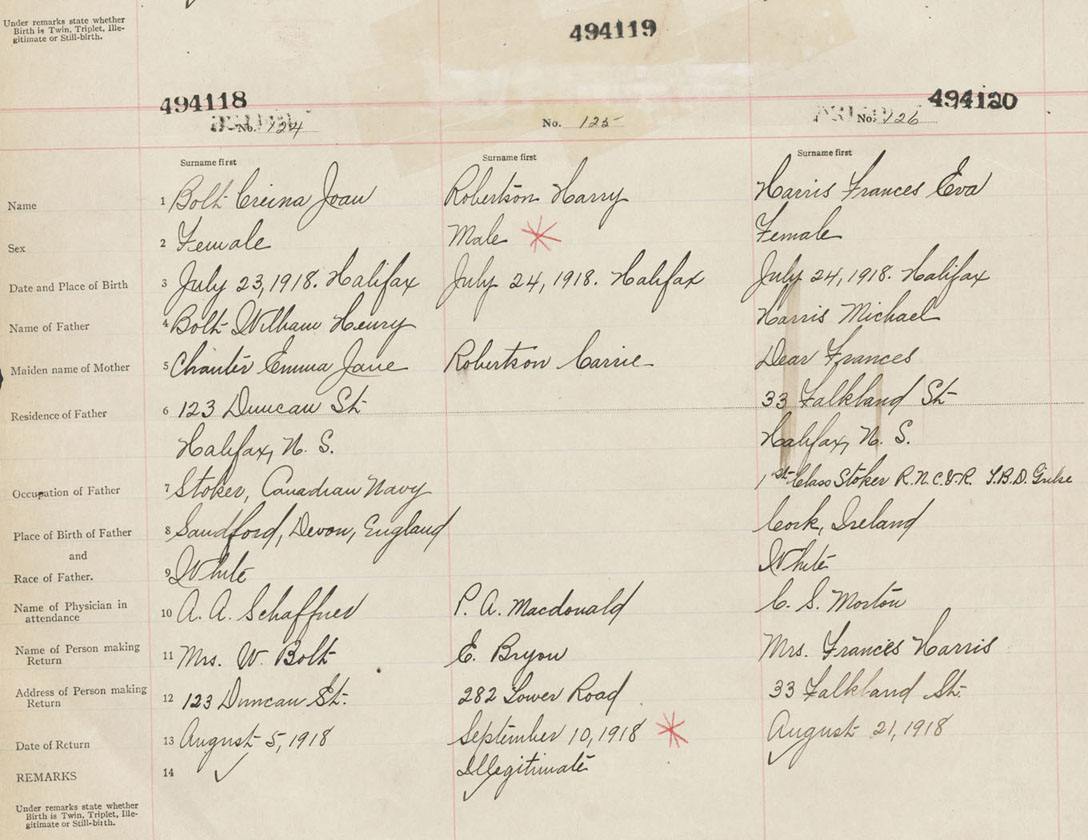 Under remarks state whether
Birth is Twin, Triplet, Ille-
gitimate or Still-birth.
494119
494118
494120
No. 124
No. 125
No. 126
Surname first
Surname first
Surname first
Name 1 Bolt Creina Joan Robertson Harry Harris Frances Eva
Sex 2 Female Male Female
Date and Place of Birth 3 July 23, 1918. Halifax July 24, 1918. Halifax July 24, 1918. Halifax
Name of Father 4 Bolt William Henry Harris Michael
Maiden name of Mother 5 Chanter Emma Jane Robertson Carrie Dear Frances
Residence of Father 6 123 Duncan St 33 Falkland St
Halifax, N. S. Halifax, N. S.
Occupation of Father 7 Stoker, Canadian Navy 1st Class Stoker R.N.C.V.R.
Place of Birth of Father 8 Sandford, Devon, England Cork, Ireland
and
Race of Father. 9 White White
Name of Physician in
attendance 10 A. A. Schaffner P. A. Macdonald C. S. Morton
Name of Person making
Return 11 Mrs. W. Bolt E. Bryon Mrs. Frances Harris
Address of Person making
Return 12 123 Duncan St. 282 Lower Road 33 Falkland St.
Date of Return 13 August 5, 1918 September 10, 1918 August 21, 1918
REMARKS 14 Illegitimate
Under remarks state whether
Birth is Twin, Triplet, Ille-
gitimate or Still-birth.